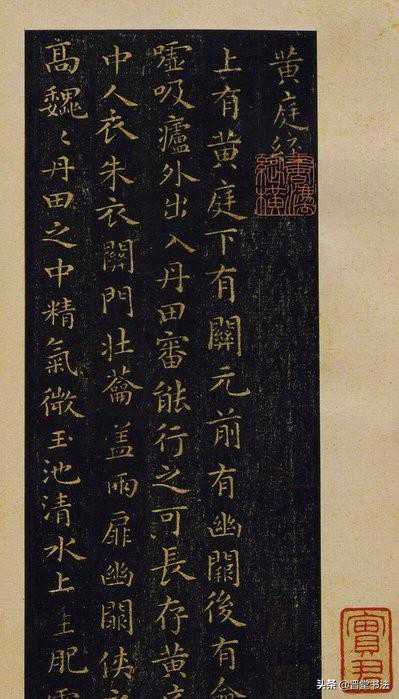 黄庭經
上有黄庭下有關元前有幽闕後有
嘘吸廬外出入丹田審能行之可長存黄庭
中人衣朱衣關門壯蘥盖兩扉幽闕俠
高巍〻丹田之中精氣微玉池清水上生肥
头条 @堂书法